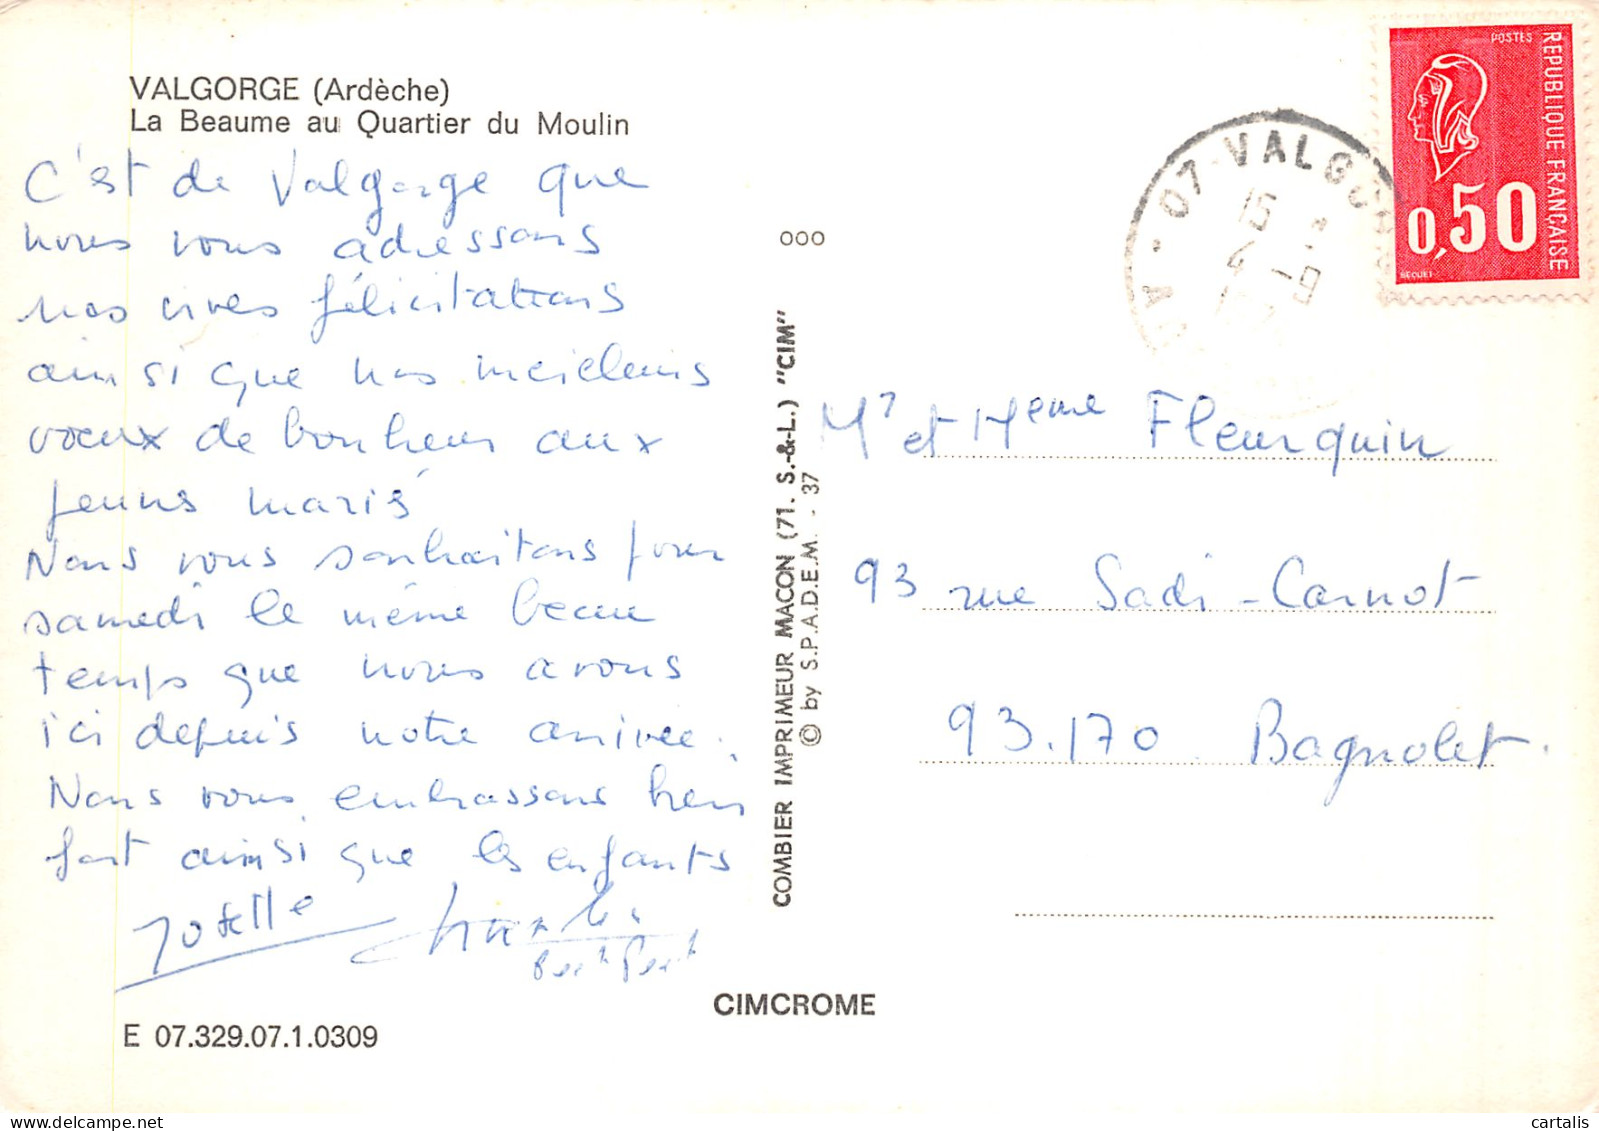 VALGORGE (Ardèche)
La Beaume au Quartier du Moulin
C'est de Valgorge que
nous vous adressons
nos vives félicitations
ainsi que nos meilleurs
voeux de bonheur aux
jeunes mariés
Nous vous souhaitons pour
samedi le même beau
temps que nous avons
ici depuis notre arrivée.
Nous vous embrassons bien
fort ainsi que les enfants
Josette
E 07.329.07.1.0309
CIMCROME
ooo
COMBIER IMPRIMEUR MACON (71. S.-&-L.) "CIM"
© by S.P.A.D.E.M. - 37
07-VALGOR
15
4 -9
POSTES
REPUBLIQUE FRANÇAISE
0,50
BEQUET
Mr et Meme Fleurquin
93 rue Sadi-Carnot
93.170 Bagnolet.
cartalis